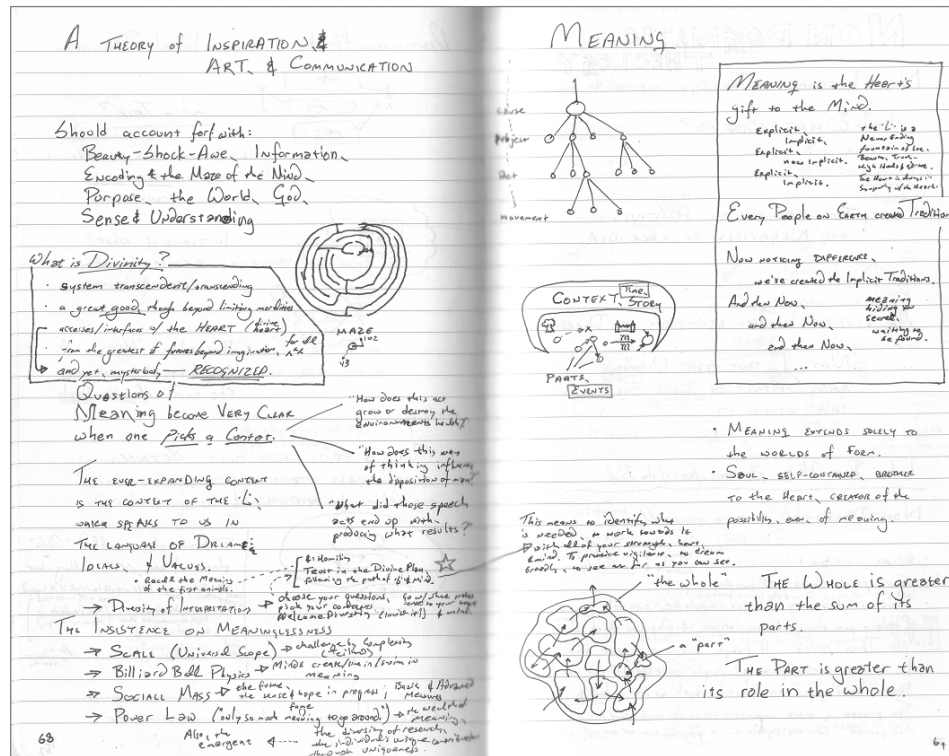 A THEORY of INSPIRATION, &
ART, & COMMUNICATION
Should account for/with:
Beauty-Shock-Awe, Information,
Encoding & the Maze of the Mind,
Purpose, the World, God,
Sense & Understanding
What is Divinity?
· system transcendent/transcending
· a great good, though beyond limiting modalities
accesses/interfaces w/ the HEART (divine heart)
· from the greatest of futures beyond imagination, for all
and yet, mysteriously — RECOGNIZED.
MAZE
102
43
Questions of
Meaning become VERY CLEAR
when one Picks a Context.
"How does this act
grow or destroy the
environments health?"
"How does this way
of thinking influence
the disposition of man?"
"What did those speech
acts end up with,
producing what results?"
THE EVER-EXPANDING CONTEXT
IS THE CONTEXT OF THE
WHICH SPEAKS TO US IN
THE LANGUAGE OF DREAMS,
IDEALS, & VALUES.
· Recall the Meaning
of the first animals.
& Humility
Trust in the Divine Plan,
following the path of
→ Diversity of Interpretation → choose your questions,
pick your contexts
Welcome Diversity
THE INSISTENCE ON MEANINGLESSNESS
→ SCALE (Universal Scope) → challenge by Complexity
→ Billiard Ball Physics → Minds create/live in/swim in
meaning
→ SOCIAL MASS → the future,
the sense of hope in progress; Basic & Advanced
Measures
→ Power Law ("only so much meaning to go around") → the wealth of
meaning,
the diversity of research,
the individual's unique contribution
through uniqueness.
Also, the
emergent
68
MEANING
cause
project
act
movement
MEANING is the Heart's
gift to the Mind.
Explicit,
Implicit.
Explicit,
now Implicit.
Explicit,
Implicit.
the "L" is a
Never Ending
fountain of Love,
Beauty, Truth,
The Heart is always in
Sympathy w/ the Heart.
Every People on EARTH created Tradition
Now noticing DIFFERENCE,
we've created the Implicit Traditions.
And then Now,
and then Now,
and then Now,
...
meaning
hiding in
secret,
waiting to
be found.
CONTEXT, STORY
TIME,
PARTS,
EVENTS
· MEANING EXTENDS SOLELY TO
the WORLDS OF FORM.
· SOUL, SELF-CONTAINED, BROTHER
TO the HEART, CREATOR OF the
possibility, even, of meaning.
This means to identify what
is needed, to work towards it
with all of your strength, heart,
& mind. To practice vigilance, to dream
broadly, to see as far as you can see.
"the whole"
a "part"
THE WHOLE is greater
than the sum of its
parts.
THE PART is greater than
its role in the whole.